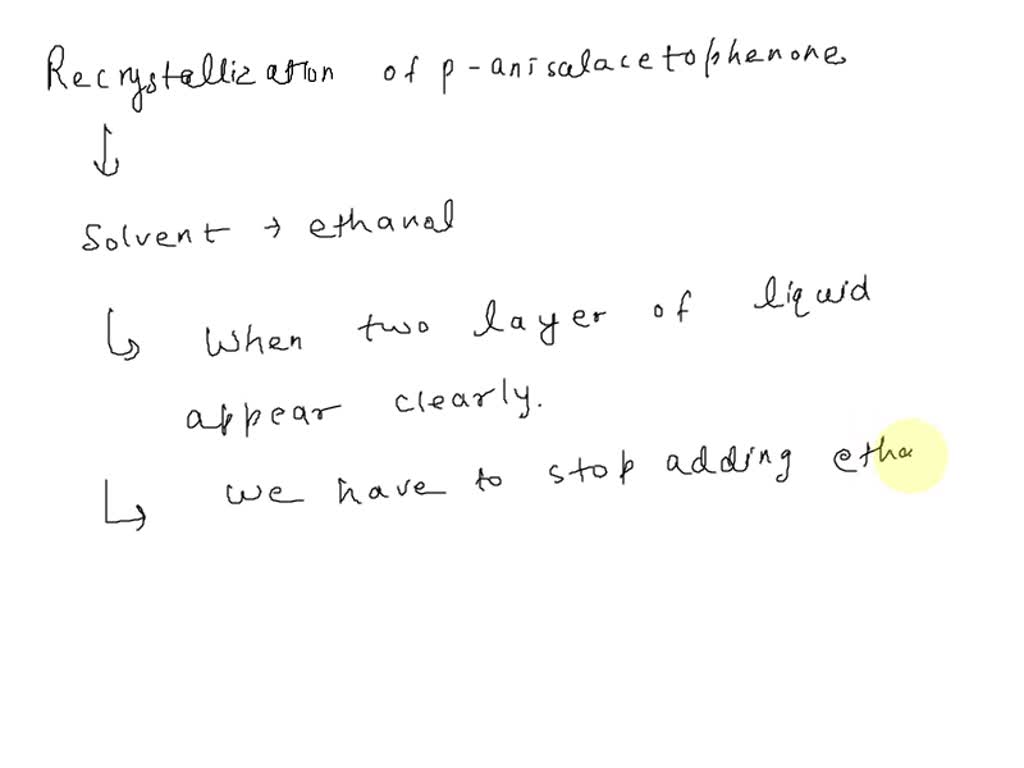 Recrystallization of p-anisalacetophenone
Solvent → ethanol
When two layer of liquid
appear clearly.
we have to stop adding etha